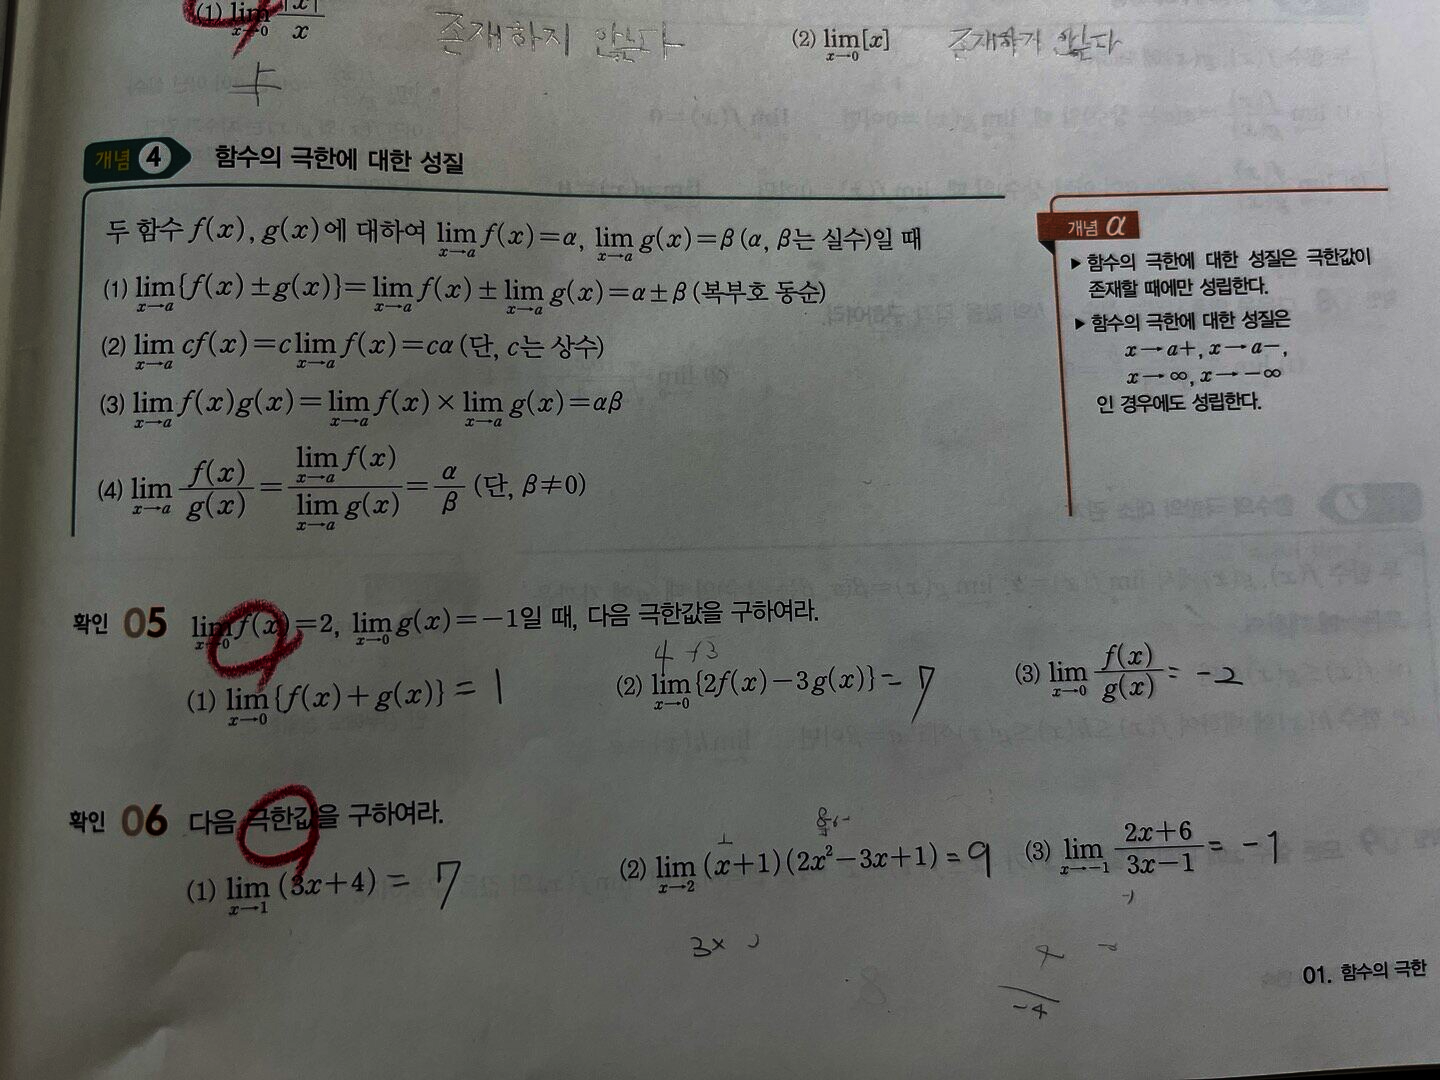 (1) lim x→0 |x|/x 존재하지 않는다 (2) lim x→0 [x] 존재하지 않는다
개념 4 함수의 극한에 대한 성질
두 함수 f(x), g(x)에 대하여 lim x→a f(x)=α, lim x→a g(x)=β (α, β는 실수)일 때
(1) lim x→a {f(x)±g(x)}=lim x→a f(x)±lim x→a g(x)=α±β (복부호 동순)
(2) lim x→a cf(x)=c lim x→a f(x)=cα (단, c는 상수)
(3) lim x→a f(x)g(x)=lim x→a f(x)×lim x→a g(x)=αβ
(4) lim x→a f(x)/g(x)=lim x→a f(x)/lim x→a g(x)=α/β (단, β≠0)
개념 α
▶ 함수의 극한에 대한 성질은 극한값이
존재할 때에만 성립한다.
▶ 함수의 극한에 대한 성질은
x→a+, x→a−,
x→∞, x→−∞
인 경우에도 성립한다.
확인 05 lim x→0 f(x)=2, lim x→0 g(x)=−1일 때, 다음 극한값을 구하여라.
4 +3
(1) lim x→0 {f(x)+g(x)} = 1 (2) lim x→0 {2f(x)−3g(x)} = 7 (3) lim x→0 f(x)/g(x) = -2
확인 06 다음 극한값을 구하여라.
(1) lim x→1 (3x+4) = 7 (2) lim x→2 (x+1)(2x²−3x+1) = 9 (3) lim x→−1 2x+6/3x−1 = -1
3x
-4
01. 함수의 극한